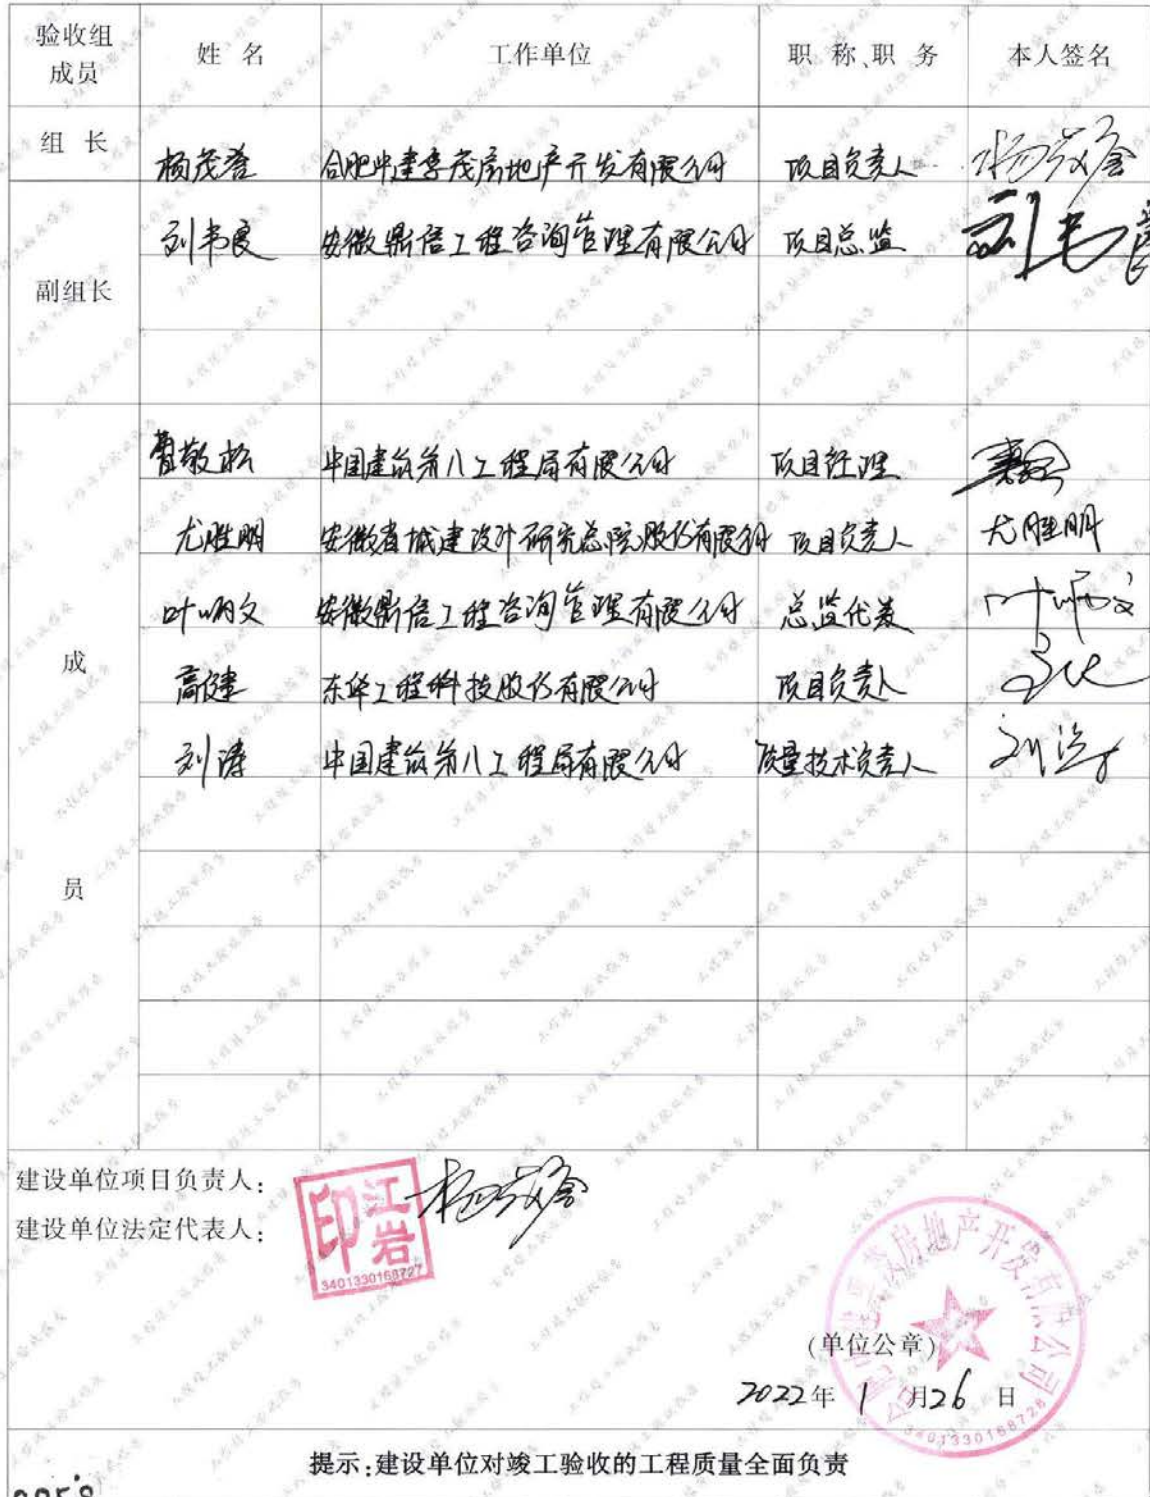 验收组成员 姓 名 工作单位 职 称、职 务 本人签名
组 长 杨茂誉 合肥中建孚茂房地产开发有限公司 项目负责人
副组长 刘书良 安徽鼎信工程咨询管理有限公司 项目总监
成员
曹敬松 中国建筑第八工程局有限公司 项目经理
尤胜明 安徽省城建设计研究总院股份有限公司 项目负责人 尤胜明
叶炳文 安徽鼎信工程咨询管理有限公司 总监代表
高健 东华工程科技股份有限公司 项目负责人
刘涛 中国建筑第八工程局有限公司 质量技术负责人 刘涛
建设单位项目负责人:
建设单位法定代表人:
江岩印
3401330168727
房地产开发有限公司
(单位公章)
2022年 1 月26 日
3401330168726
提示:建设单位对竣工验收的工程质量全面负责
工程竣工验收报告